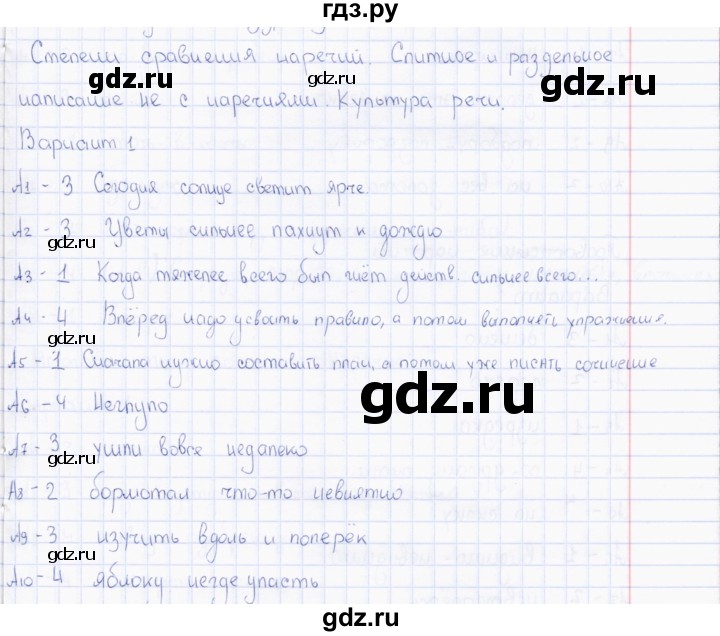 гдз.ру
Степени сравнения наречий. Слитное и раздельное
написание не с наречиями. Культура речи.
Вариант 1
А1 - 3 Сегодня солнце светит ярче.
А2 - 3 Цветы сильнее пахнут к дождю
А3 - 1 Когда тяжелее всего был гнёт действ. сильнее всего...
А4 - 4 Вперёд надо усвоить правило, а потом выполнять упражнения.
А5 - 1 Сначала нужно составить план, а потом уже писать сочинение
А6 - 4 Неглупо
А7 - 3 ушли вовсе недалеко
А8 - 2 бормотал что-то невнятно
А9 - 3 изучить вдоль и поперёк
А10 - 4 яблоку негде упасть
gdz.ru
gdz.ru
gdz.ru
gdz.ru
gdz.ru
gdz.ru
gdz.ru
gdz.ru
gdz.ru
gdz.ru
gdz.ru
gdz.ru
gdz.ru
gdz.ru